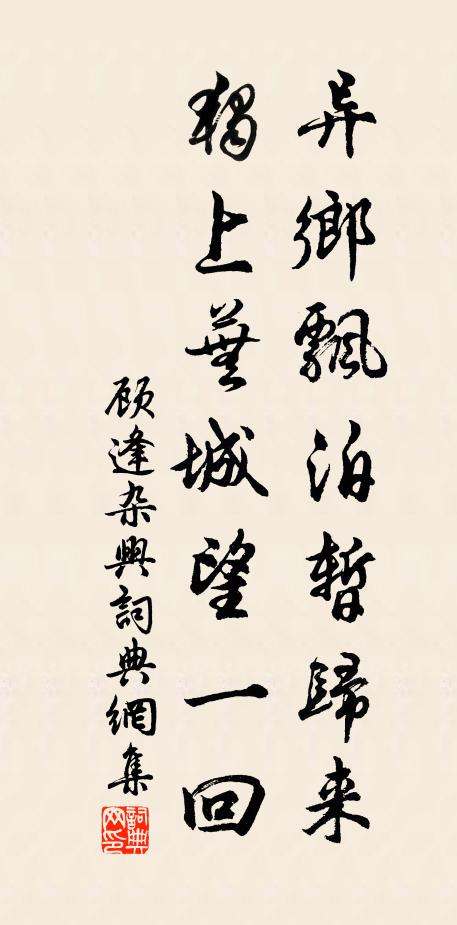 异鄉飄泊暫歸来
獨上蕪城望一回
顾逢杂興詞典網集
詞典网印